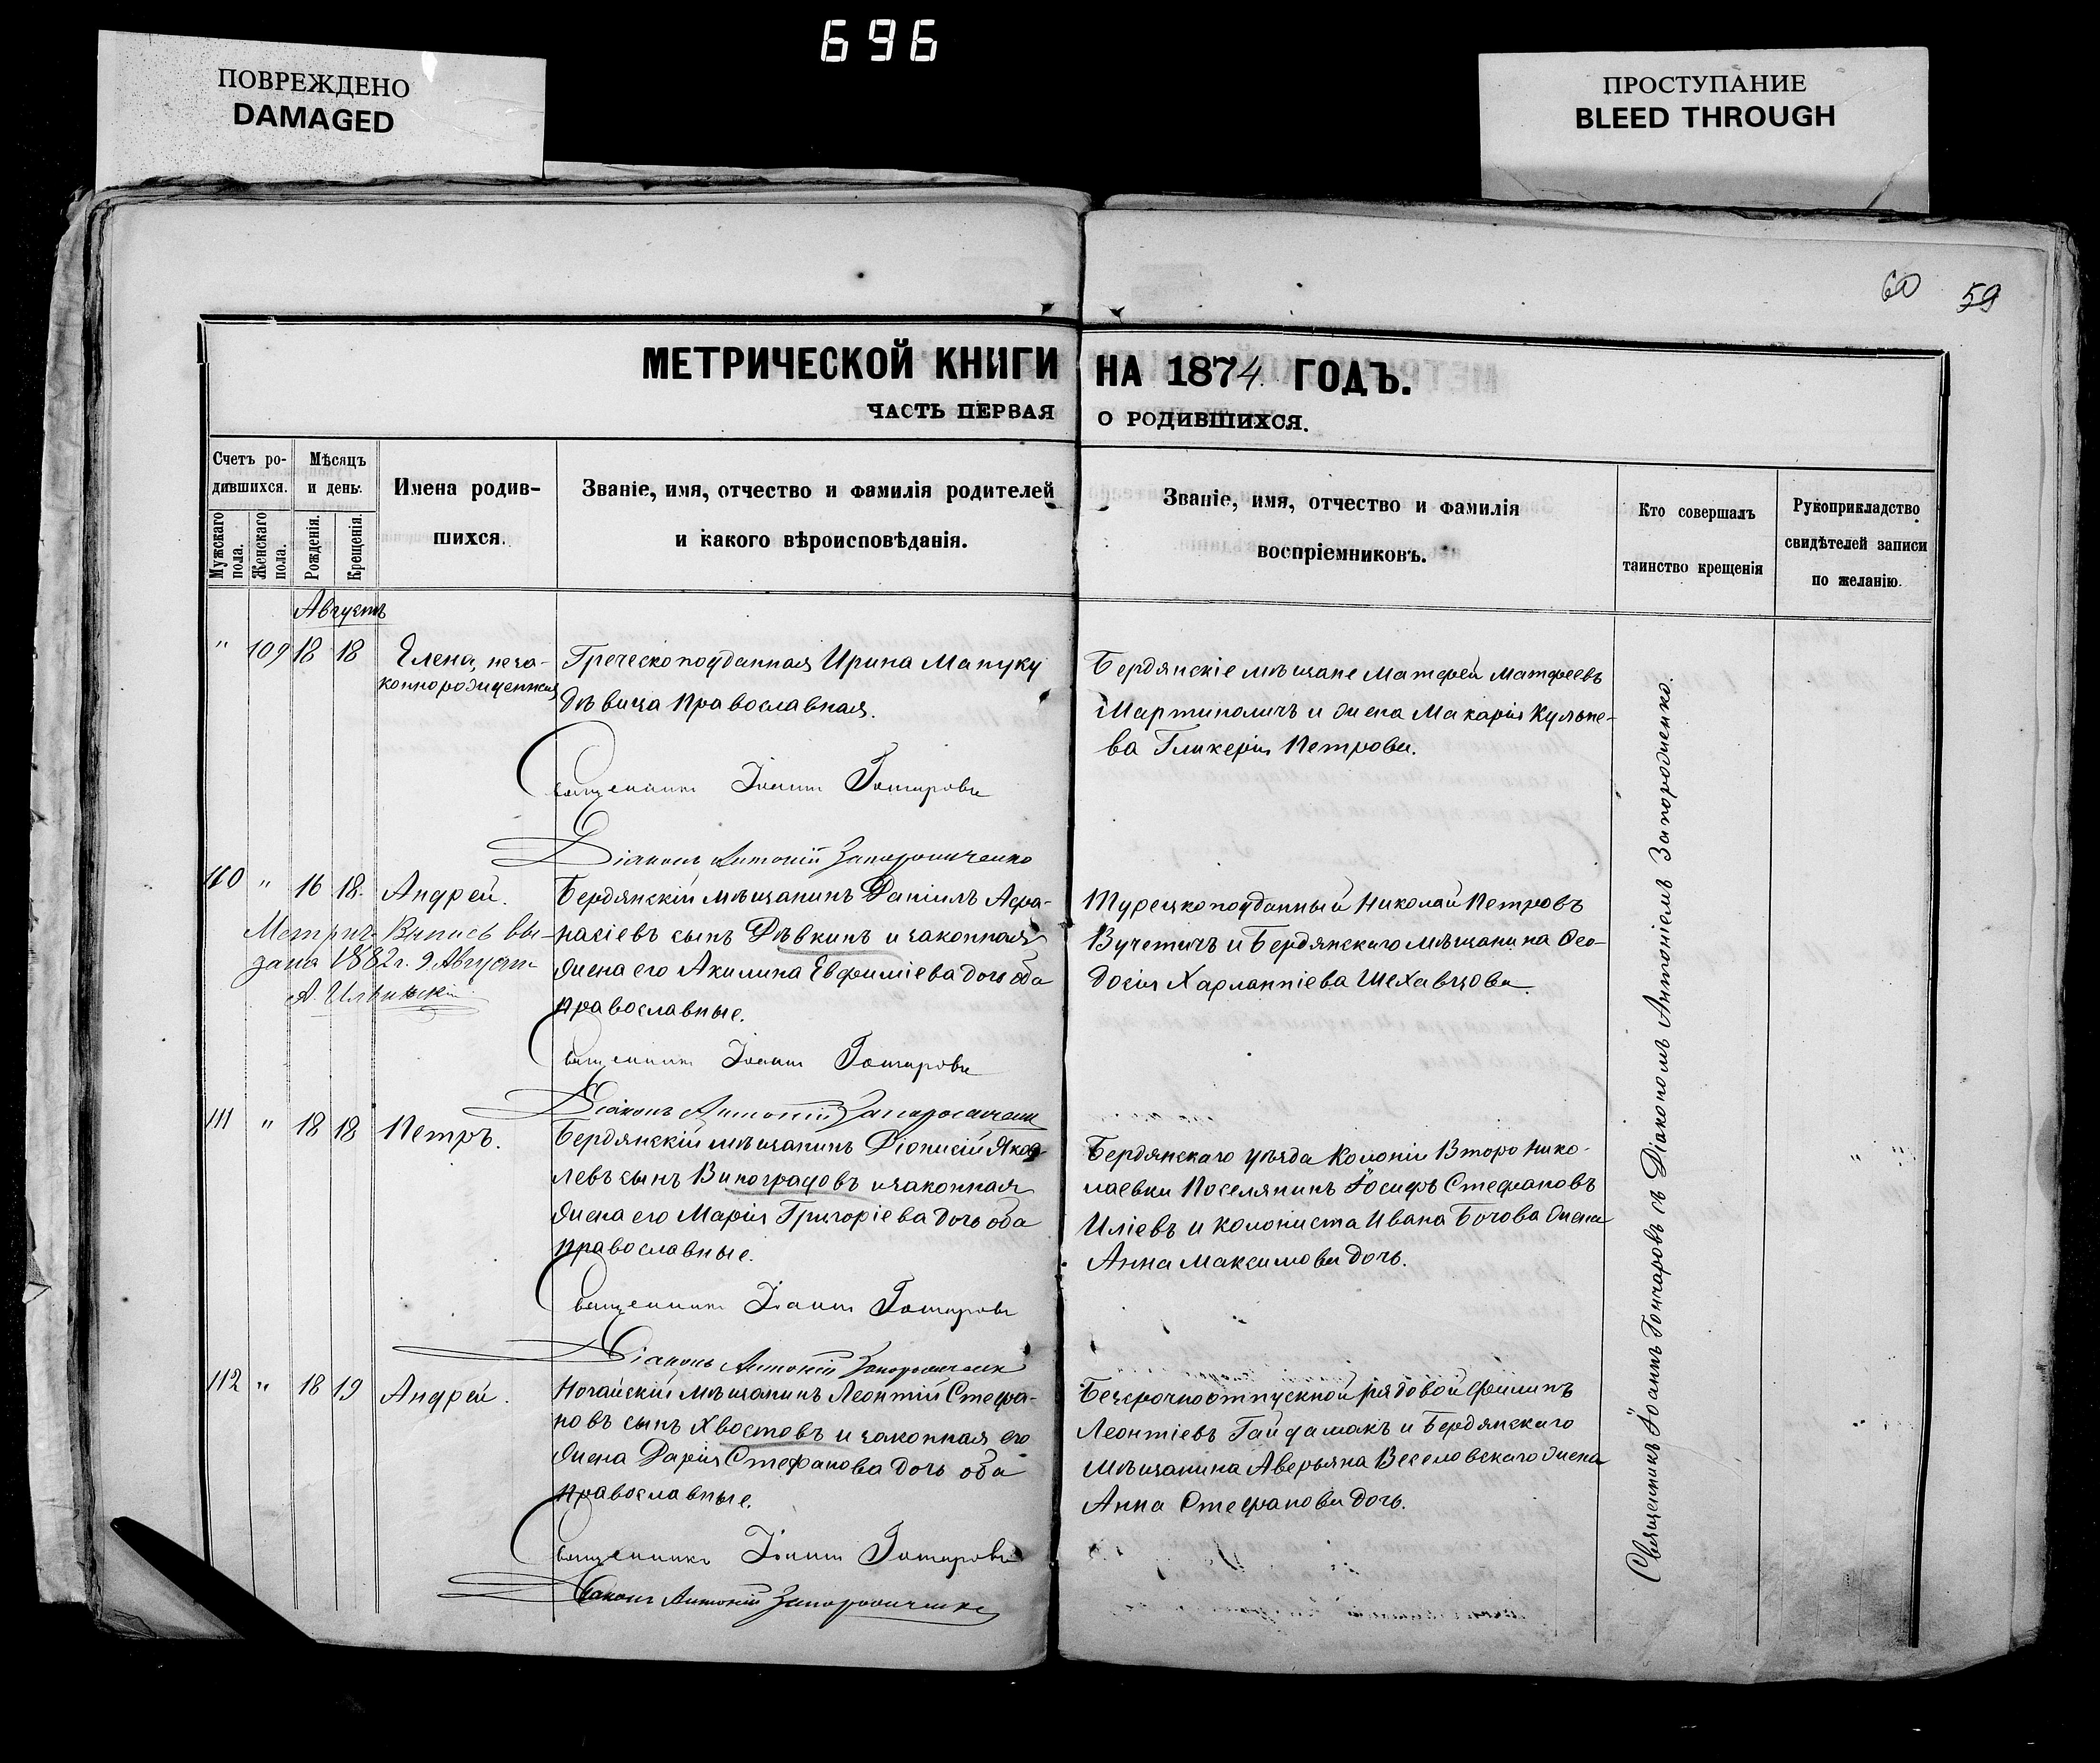 696
ПОВРЕЖДЕНО
DAMAGED
ПРОСТУПАНИЕ
BLEED THROUGH
60 59
МЕТРИЧЕСКОЙ КНИГИ НА 1874 ГОДЪ.
ЧАСТЬ ПЕРВАЯ О РОДИВШИХСЯ.
Счетъ ро-
дившихся.
Мужскаго пола.
Женскаго пола.
Мѣсяцъ
и день.
Рожденія.
Крещенія.
Имена родив-
шихся.
Званіе, имя, отчество и фамилія родителей
и какого вѣроисповѣданія.
Званіе, имя, отчество и фамилія
воспріемниковъ.
Кто совершалъ
таинство крещенія
Рукоприкладство
свидѣтелей записи
по желанію.
Августъ
" 109 18 18
Елена, неза-
коннорожденная
Греческоподданная Ирина Мануку
дѣвица Православная.
Священникъ Іоаннъ Гончаровъ
Діаконъ Антоній Запорожченко
Бердянскіе мѣщане Матфей Матфеевъ
Мартиновичъ и жена Макарія Кульне-
ва Гликерія Петрова.
110 " 16 18.
Андрей.
Метрич. Выпись вы-
дана 1882 г. 9 Августа
А. Ильинскій
Бердянскій мѣщанинъ Даніилъ Афа-
насіевъ сынъ Рѣвкинъ и законная
жена его Акилина Евфиміева дочь оба
православные.
Священникъ Іоаннъ Гончаровъ
Діаконъ Антоній Запорожченко
Турецкоподданный Николай Петровъ
Вучетичъ и Бердянскаго мѣщанина Ѳео-
досія Харлампіева Шехавцова.
111 " 18 18
Петръ.
Бердянскій мѣщанинъ Діонисій Яков-
левъ сынъ Виноградовъ и законная
жена его Марія Григоріева дочь оба
православные.
Священникъ Іоаннъ Гончаровъ
Діаконъ Антоній Запорожченко
Бердянскаго уѣзда Колоніи Второ Нико-
лаевки Поселянинъ Іосифъ Стефановъ
Иліевъ и колониста Ивана Богова жена
Анна Максимова дочь.
112 " 18 19
Андрей.
Ногайскій мѣщанинъ Леонтій Стефа-
новъ сынъ Хвостовъ и законная его
жена Дарія Стефанова дочь оба
православные.
Священникъ Іоаннъ Гончаровъ
Діаконъ Антоній Запорожченко
Безсрочноотпускной рядовой Филипъ
Леонтіевъ Гайдамакъ и Бердянскаго
мѣщанина Аверьяна Веселовскаго жена
Анна Стефанова дочь.
Священникъ Іоаннъ Гончаровъ съ Діакономъ Антоніемъ Запороженко.